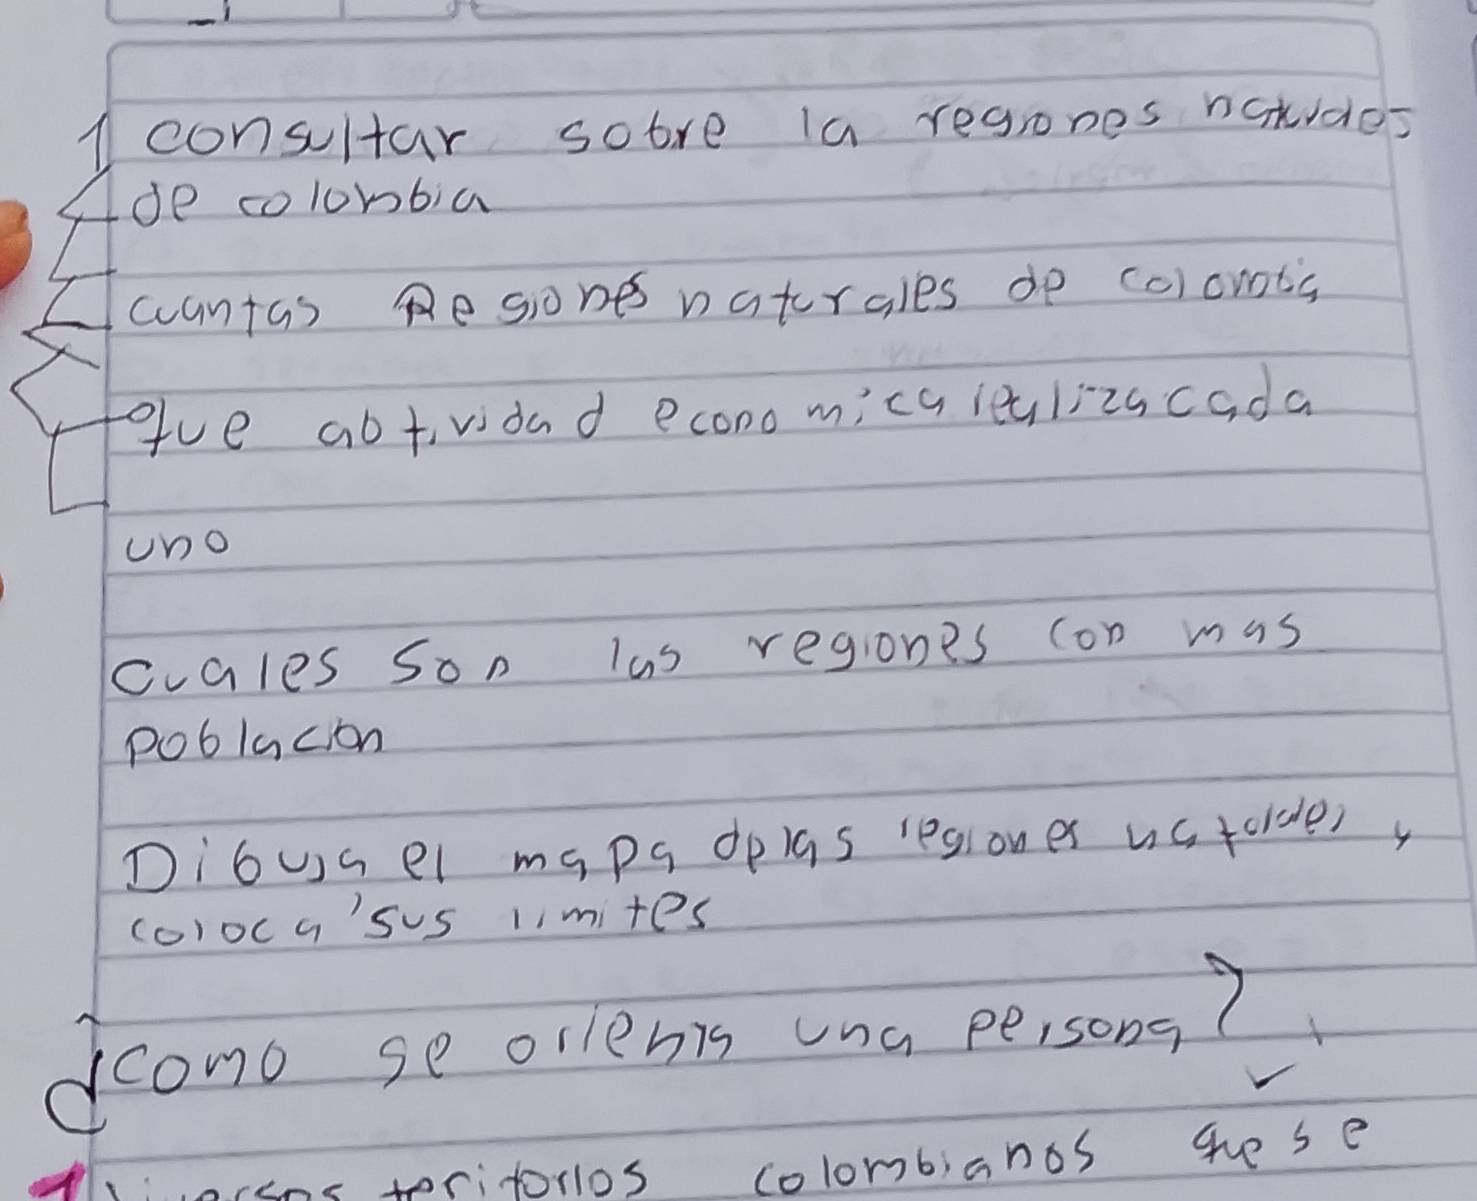 1 consultar sobre la regiones naturales
de colombia
cuantas Regiones naturales de colombia
que abtividad economica realiza cada
uno
cuales son las regiones con mas
poblacion
Dibuja el mapa de las regiones y
coloca sus limites
¿como se orienta una persona?
teritorios colombianos que se